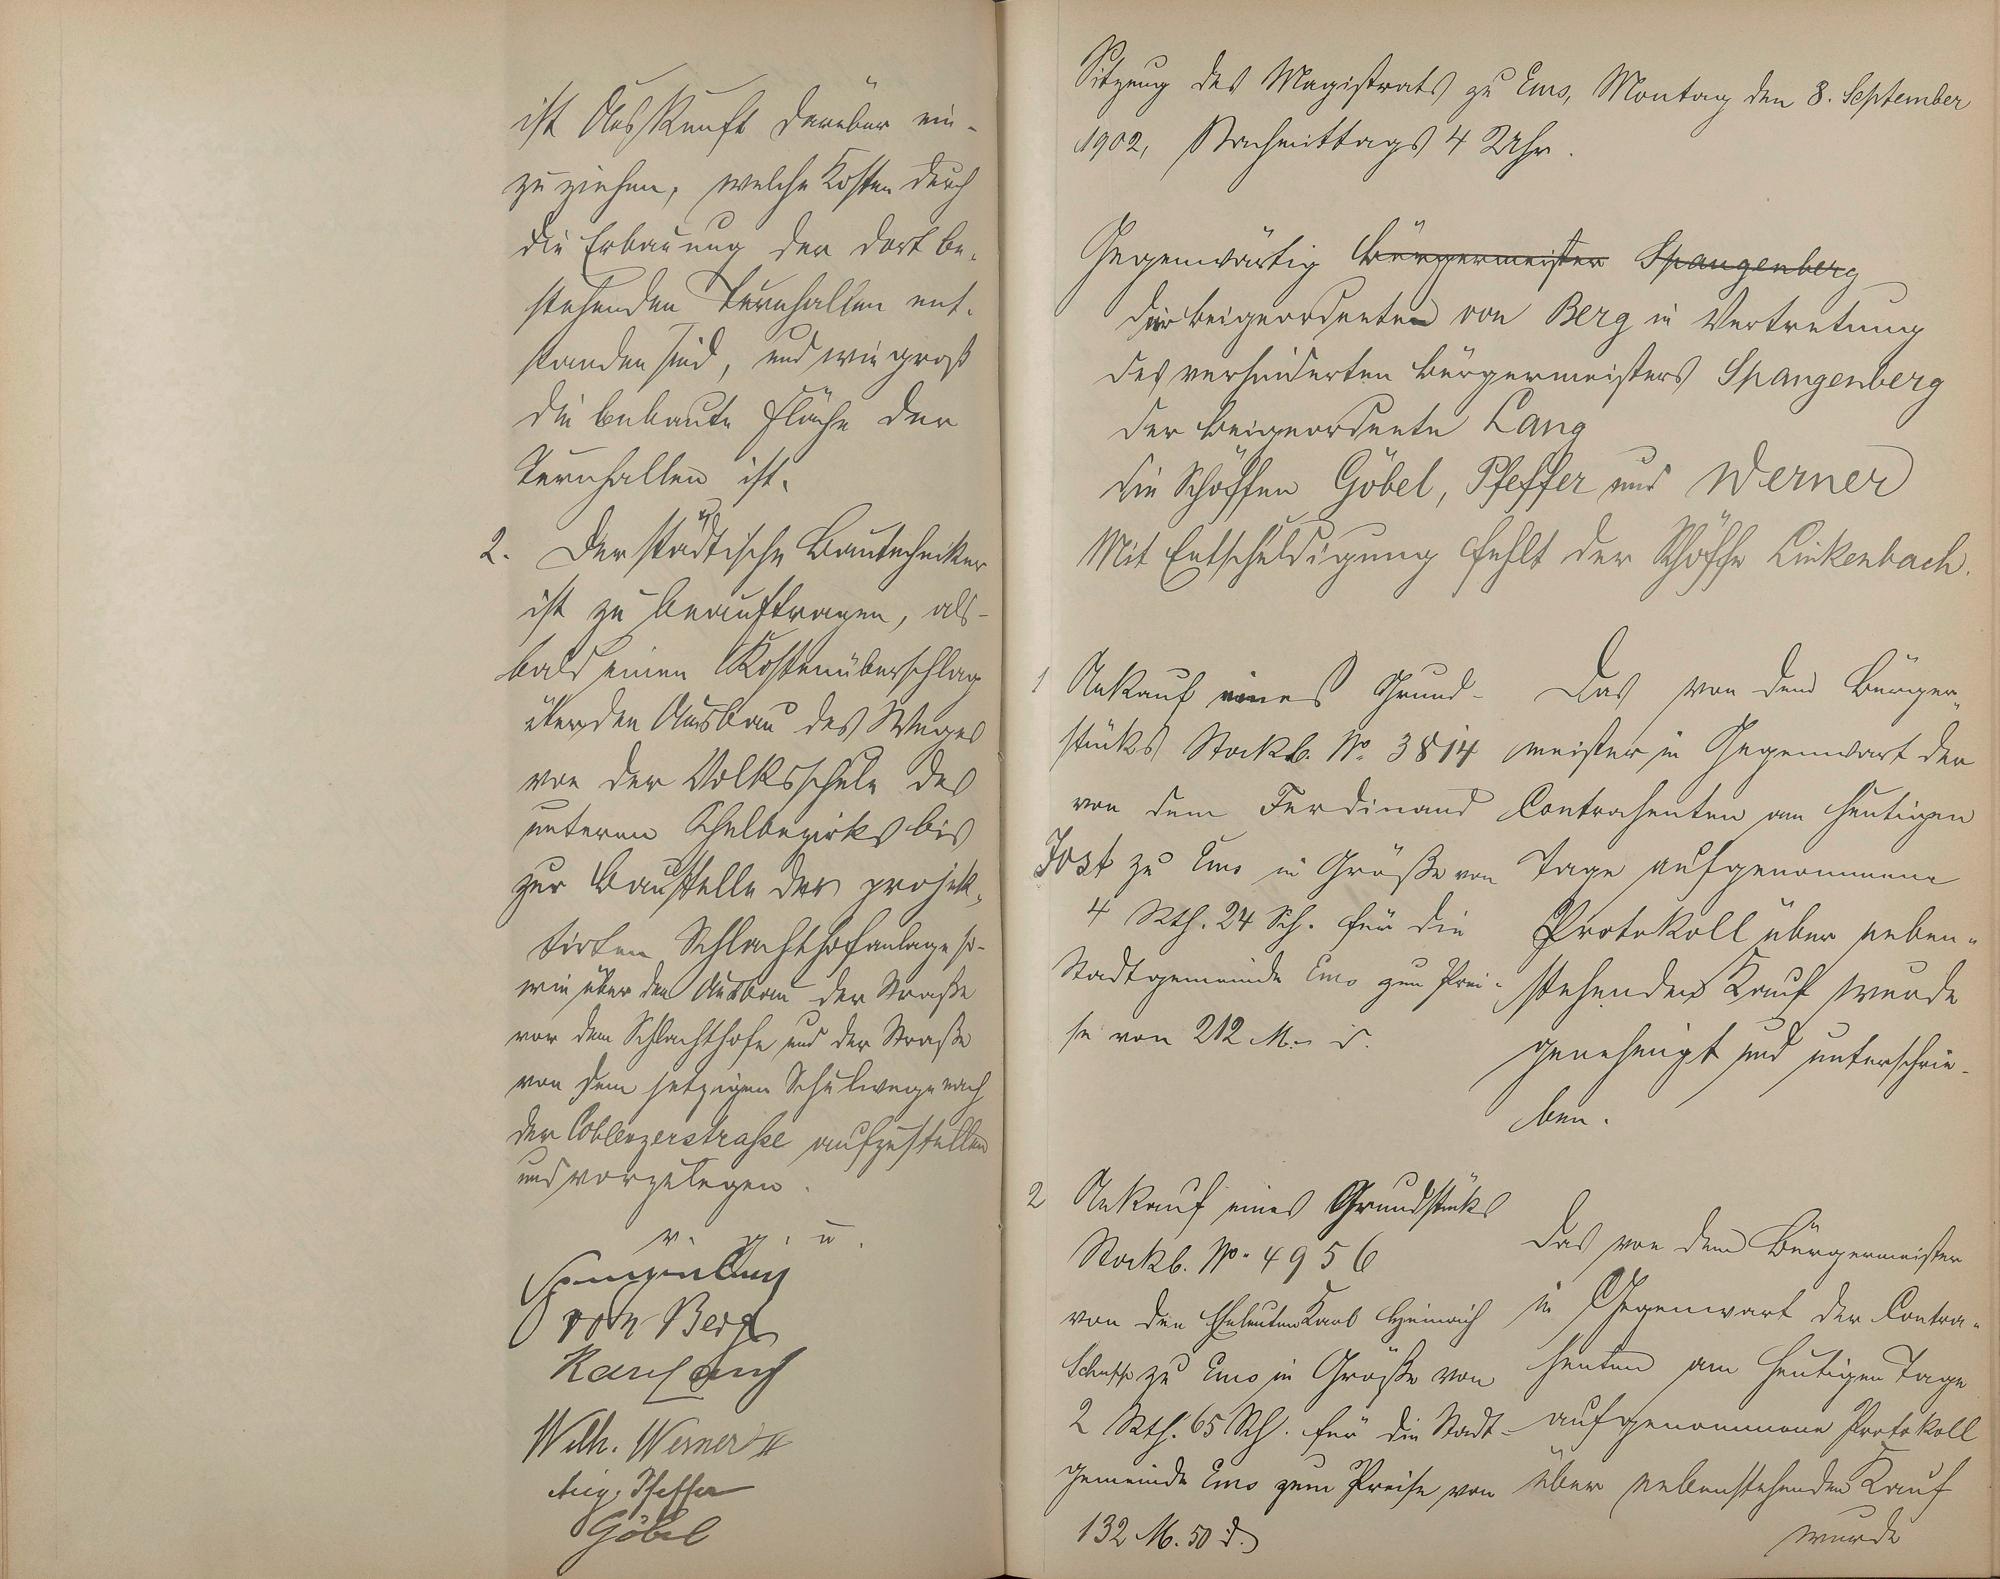 ist Auskunft darüber ein-
zuziehen, welche Kosten durch
die Erbauung der dort be-
stehenden Turnhallen ent-
standen sind, und wie groß
die bebaute Fläche der
Turnhallen ist.
2. Der städtische Bautechniker
ist zu beauftragen, als-
bald einen Kostenüberschlag
über den Ausbau des Weges
von der Volksschule des
unteren Schulbezirks bis
zur Baustelle der projek-
tirten Schlachthofanlage so-
wie über den Ausbau der Straße
vor dem Schlachthofe und der Straße
von dem jetzigen Schulwege nach
der Coblenzerstraße aufzustellen
und vorzulegen.
v. g. u.
Spangenberg
von Berg
Karl Lang
Wilh. Werner II
Aug. Pfeffer
Göbel
Sitzung des Magistrats zu Ems, Montag den 8. September
1902, Nachmittags 4 Uhr.
Gegenwärtig Bürgermeister Spangenberg
der Beigeordneten von Berg in Vertretung
des verhinderten Bürgermeisters Spangenberg
der Beigeordnete Lang
die Schöffen Göbel, Pfeffer und Werner
Mit Entschuldigung fehlt der Schöffe Linkenbach.
1 Ankauf eines Grund-
stücks Stockb. No. 3814
von dem Ferdinand
Jost zu Ems in Größe von
4 Rth. 24 Sch. für die
Stadtgemeinde Ems zum Prei-
se von 212 M. – d.
Das von dem Bürger-
meister in Gegenwart der
Contrahenten am heutigen
Tage aufgenommene
Protokoll über neben-
stehenden Kauf wurde
genehmigt und unterschrie-
ben.
2 Ankauf eines Grundstücks
Stockb. No. 4956
von den Eheleuten Karl Heinrich
zu Ems in Größe von
2 Rth. 65 Sch. für die Stadt-
gemeinde Ems zum Preise von
132 M. 50 d.
Das von dem Bürgermeister
in Gegenwart der Contra-
henten am heutigen Tage
aufgenommene Protokoll
über nebenstehenden Kauf
wurde